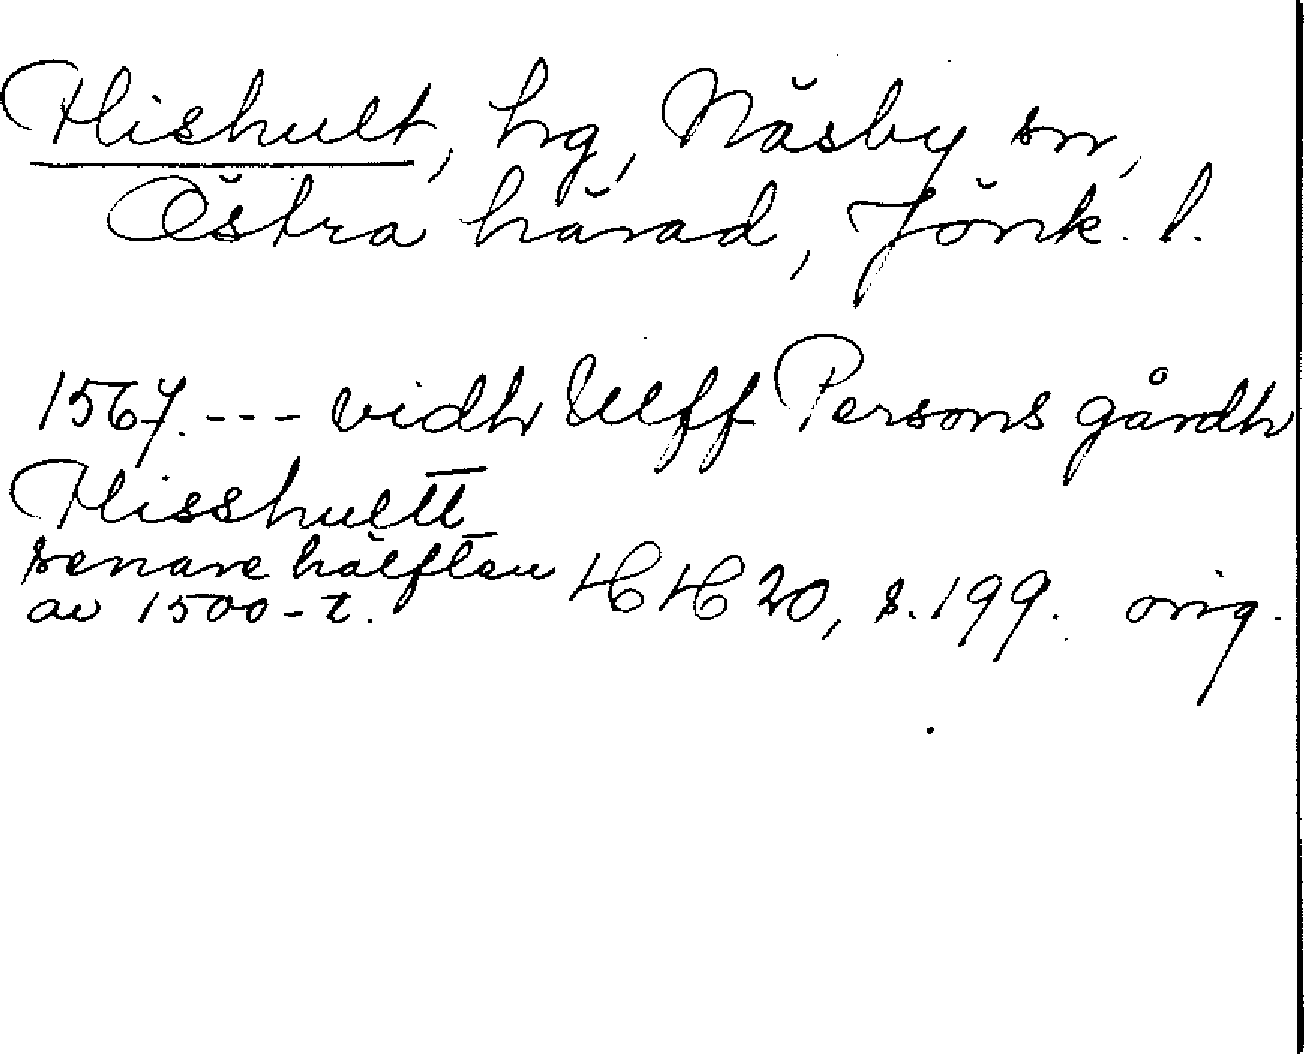 Hishult, hg, Näsby sn,
Östra härad, Jönk. l.
1567. --- vidh Ulff Persons gårdh
Hisshultt
senare hälften
av 1500-t. HH 20, s. 199. orig.